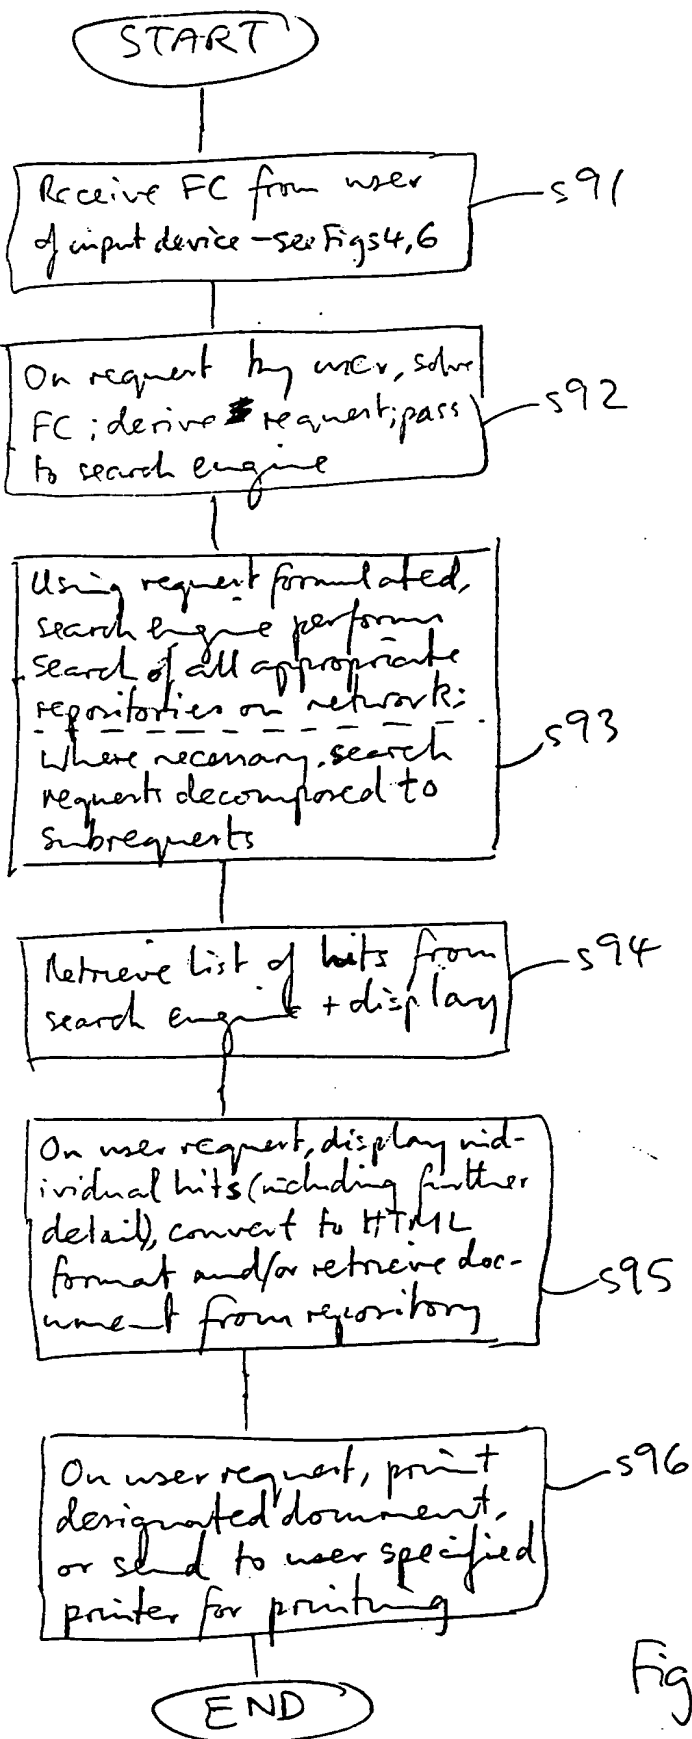 START
Receive FC from user
of input device - see Figs 4, 6
s91
On request by user, solve
FC; derive request; pass
to search engine
s92
Using request formulated,
search engine performs
search of all appropriate
repositories on network:
where necessary, search
requests decomposed to
subrequests
s93
Retrieve list of hits from
search engine + display
s94
On user request, display ind-
ividual hits (including further
detail), convert to HTML
format and/or retrieve doc-
ument from repository
s95
On user request, print
designated document,
or send to user specified
printer for printing
s96
END
Fig